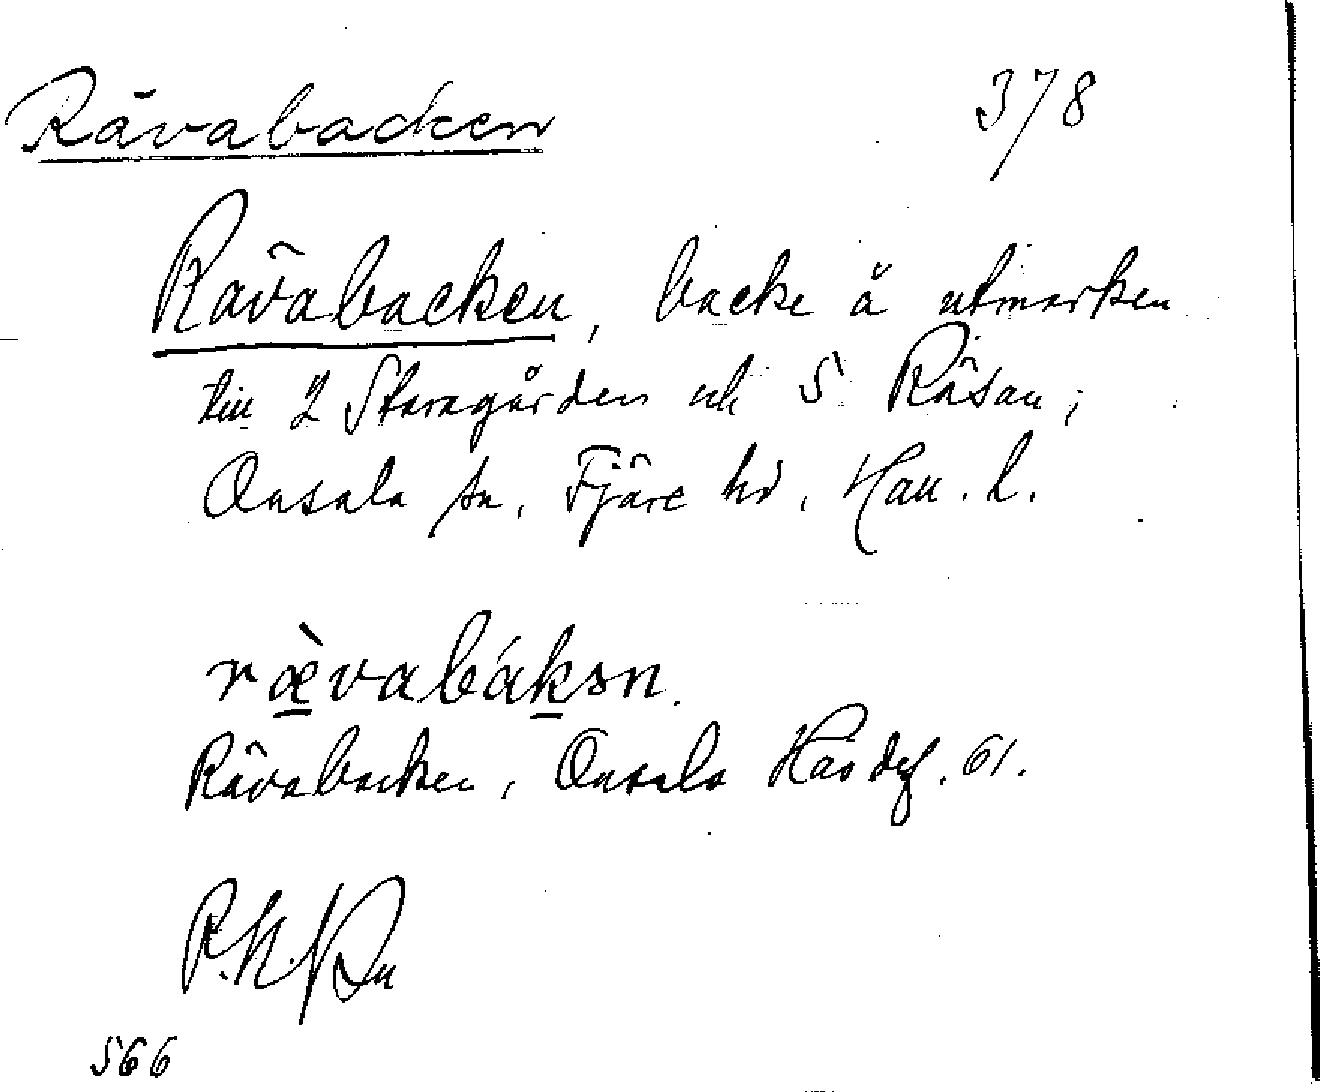 Rävabacken 378
Rävabacken, backe å utmarken
till 2 Storegården och 5 Råsan;
Onsala sn, Fjäre hd, Hall. l.
ræ̀vabákən.
Rävabacken, Onsala Häradsb. 61.
566